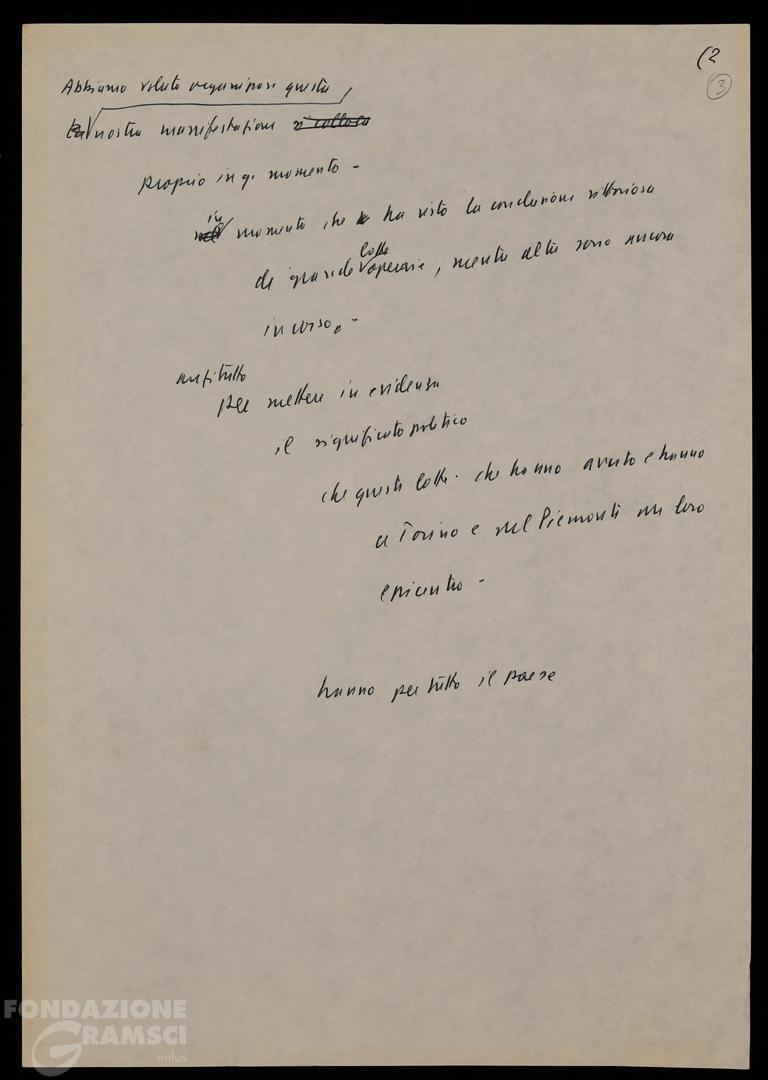 (2
3
Abbiamo voluto organizzare questa
La nostra manifestazione si colloca
proprio in q. momento -
in
nel momento che ha visto la conclusione vittoriosa
lotte
di grandi operaie, mentre altre sono ancora
in corso. -
anzitutto
per mettere in evidenza
il significato politico
che queste lotte - che hanno avuto e hanno
a Torino e nel Piemonte un loro
epicentro -
hanno per tutto il paese
FONDAZIONE
GRAMSCI
onlus